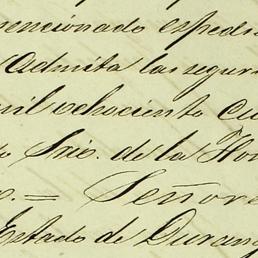 mencionado expedi
Admita las segur
mil ochociento cu
o Srio. de la Hon
= Señore
Estado de Durang